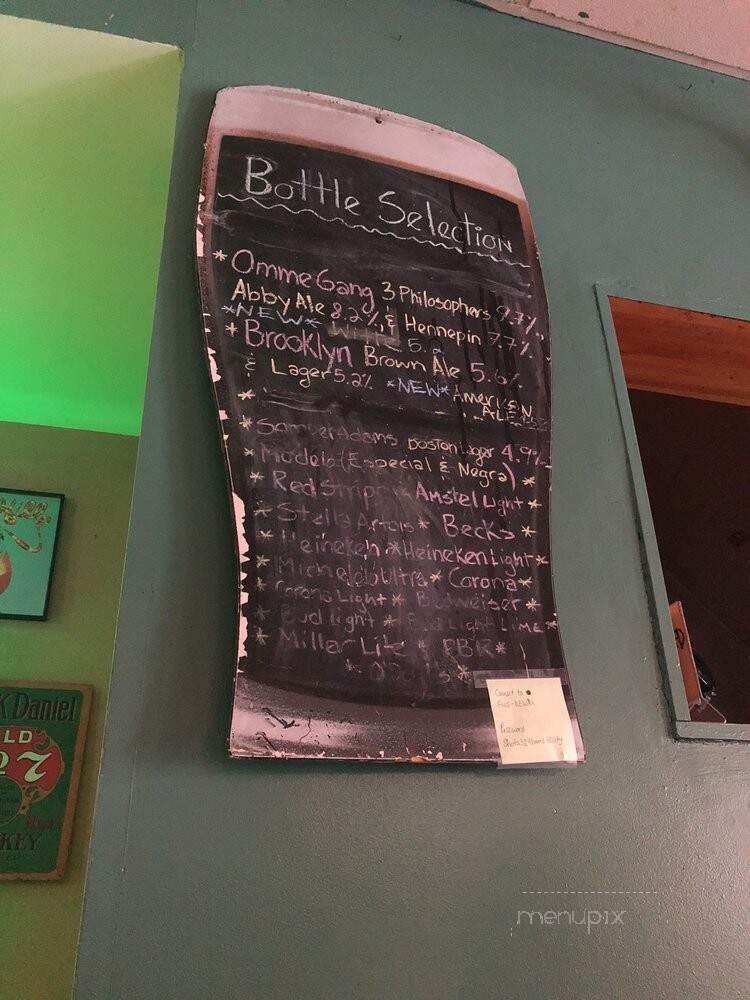 Bottle Selection
* OmmeGang 3 Philosophers 9.7%
Abby Ale 8.2% & Hennepin 7.7%
*NEW* Witte 5.2
* Brooklyn Brown Ale 5.6%
& Lager 5.2% *NEW* American
* ALE
* Samuel Adams Boston Lager 4.9%
* Modelo (Especial & Negra) *
* Red Stripe * Amstel Light *
* Stella Artois * Becks *
* Heineken * Heineken Light *
* Michelob Ultra * Corona *
* Corona Light * Budweiser *
* Bud light * Bud Light LIME *
* Millar Lite * PBR *
* O'Doul's *
Connect to
Password
K Daniel
LD
7
KEY
menupix